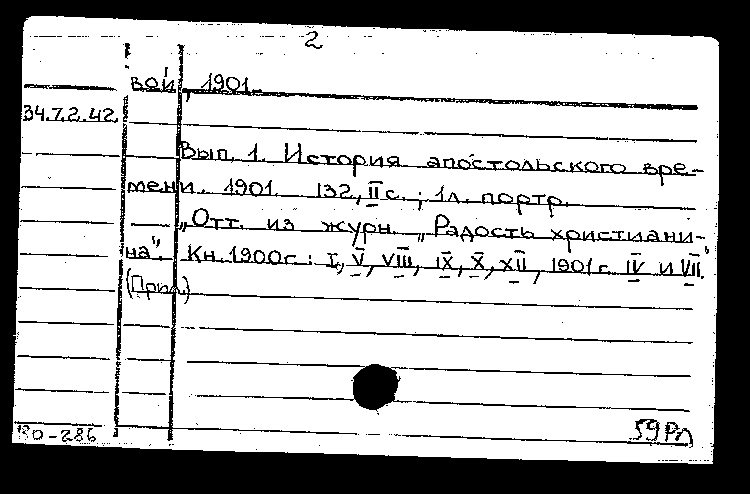 2
вой, 1901.
34.7.2.42.
Вып. 1. История апостольского вре-
мени. 1901. 132, II с.; 1 л. портр.
„Отт. из журн. „Радость христиани-
на". Кн. 1900 г.: I, V, VIII, IX, X, XII, 1901 г. IV и VII."
(Прил.)
80-286
59Рл